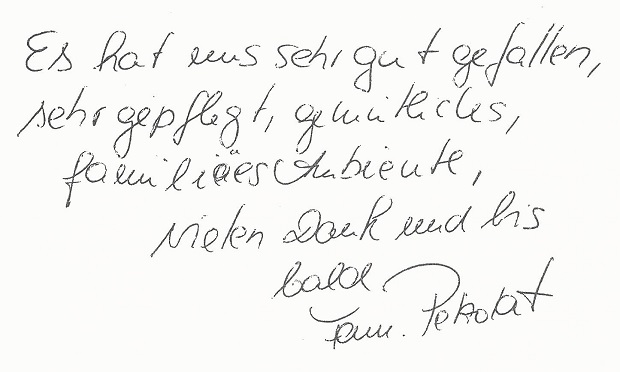 Es hat uns sehr gut gefallen,
sehr gepflegt, gemütliches,
familiäes Ambiente,
vielen Dank und bis
bald.
Fam. Pekolat